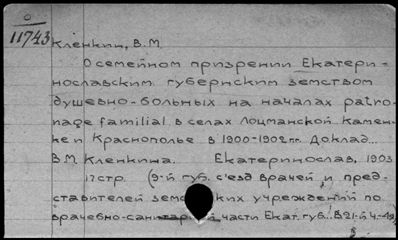 0
11743
Кленкин, В.М.
О семейном призрении Екатери-
нославским губернским земством
душевно-больных на началах patro-
nage familial в селах Лоцманской Камен-
ке и Краснополье в 1900-1902 гг. Доклад...
В.М. Кленкина. Екатеринослав, 1903.
17 стр. (9-й губ. съезд врачей и пред-
ставителей учреждений по
врачебно-санитарной части Екат. губ.. В 21-й ч.